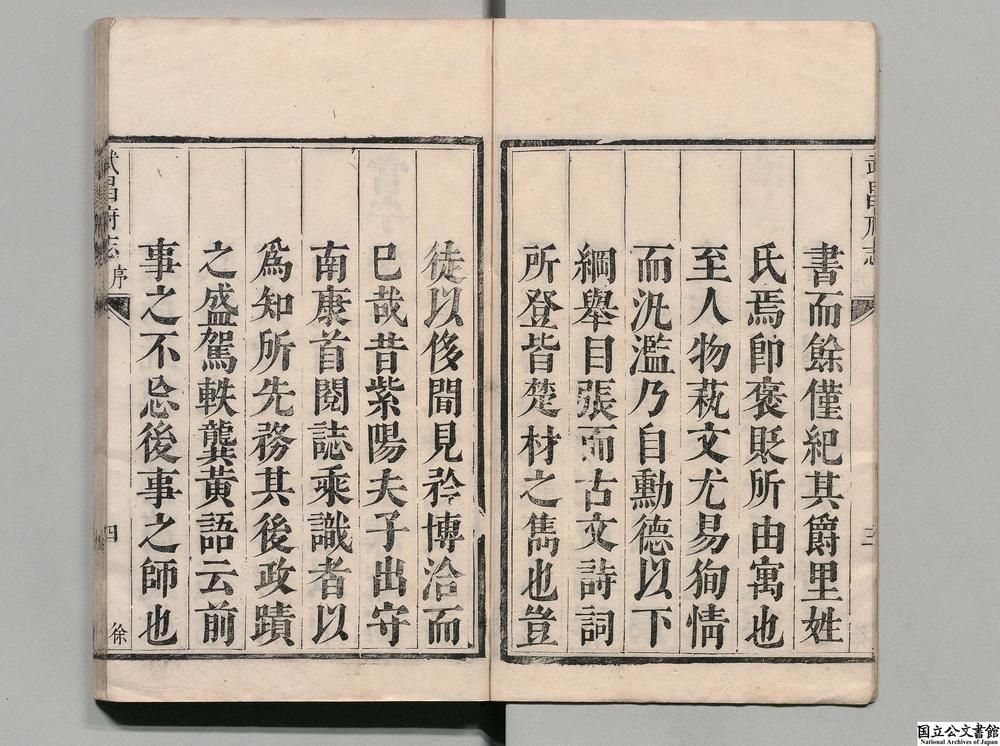 武昌府志
三
書而餘僅紀其爵里姓
氏焉卽褒貶所由寓也
至人物蓺文尤易狥情
而汎濫乃自勳德以下
綱舉目張而古文詩詞
所登皆楚材之雋也豈
徒以侈聞見矜博洽而
已哉昔紫陽夫子出守
南康首閱誌乘識者以
爲知所先務其後政蹟
之盛駕軼龔黃語云前
事之不忘後事之師也
武昌府志
序
四
徐
国立公文書館
National Archives of Japan